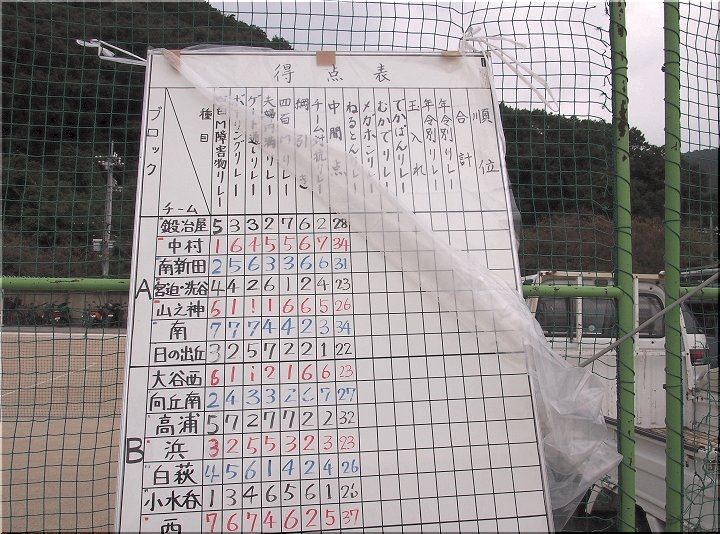 得点表
ブロック
種目
チーム
障害物リレー
ボーリングリレー
四百Mリレー
綱引き
チーム対抗リレー
中間点
ねるとんリレー
メガホンリレー
むかでリレー
でかぱんリレー
玉入れ
年令別リレー
年令別リレー
合計
順位
A
鍛治屋 5 3 3 2 7 6 2 28
中村 1 6 4 5 5 6 7 34
南新田 2 5 6 3 3 6 6 31
宮迫・洗谷 4 4 2 6 1 2 4 23
山之神 6 1 1 1 6 6 5 26
南 7 7 7 4 4 2 3 34
日の出丘 3 2 5 7 2 2 1 22
B
大谷西 6 1 1 2 1 6 6 23
向丘南 2 4 3 3 2 6 7 27
高浦 5 7 2 7 7 2 2 32
浜 3 2 5 5 3 2 3 23
白萩 4 5 6 1 4 2 4 26
小水谷 1 3 4 6 5 6 1 26
西 7 6 7 4 6 2 5 37